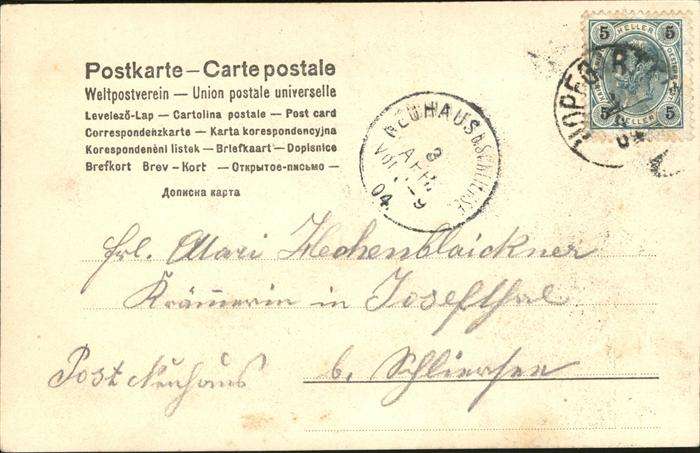 Postkarte – Carte postale
Weltpostverein – Union postale universelle
Levelező-Lap – Cartolina postale – Post card
Correspondenzkarte – Karta korespondencyjna
Korespondenční lístek – Briefkaart – Dopisnice
Brefkort Brev-Kort – Открытое-письмо –
Дописна карта
5 HELLER 5
5 5
NEUHAUS b SCHLIERSEE
3
APR
VOR. 8–9
04.
Frl. Mari Hechenblaickner
Krämerin in Josefthal
Post Neuhaus b. Schliersee